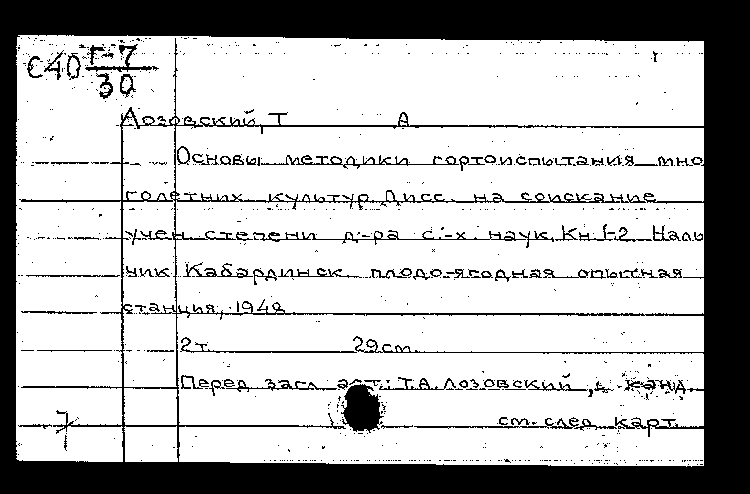 С40 Г-7
30
Лозовский, Т А
Основы методики сортоиспытания мно
голетних культур. Дисс. на соискание
учен степени д-ра с.-х. наук. Кн 1-2 Наль
чик Кабардинск плодо-ягодная опытная
станция, 1948
2т. 29см.
Перед загл авт.: Т.А. Лозовский, канд.
см. след карт.
7